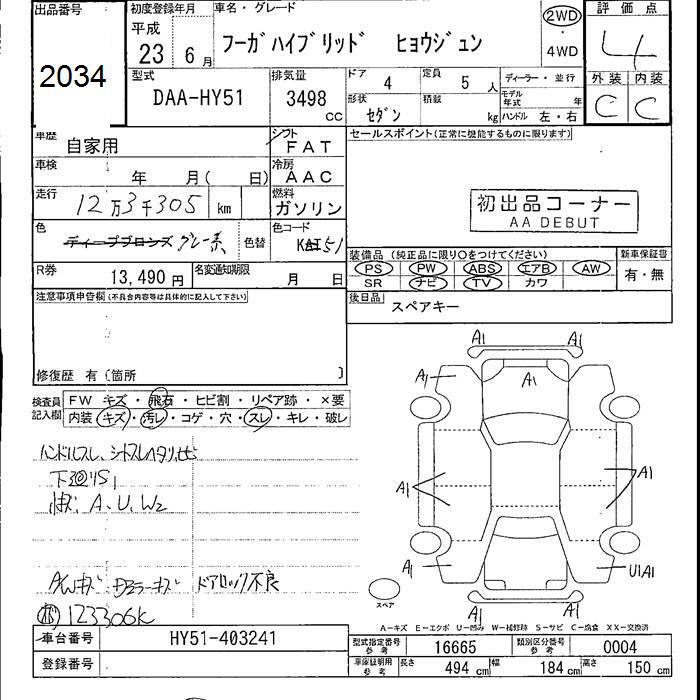 出品番号
2034
初度登録年月
平成
23 6月
車名・グレード
フーガハイブリッド ヒョウジュン
2WD
・
4WD
評価点
4
外装 内装
C C
型式
DAA-HY51
排気量
3498
CC
ドア 4
定員 5人
形状
セダン
積載
kg
ディーラー・並行
モデル年式 年
ハンドル 左・右
車歴
自家用
シフト
FAT
車検
年 月( 日)
冷房
AAC
走行
12万3千305 km
燃料
ガソリン
色
ディープブロンズ グレー系
色替
色コード
51
R券
13,490円
名変通知期限
月 日
セールスポイント(正常に機能するものに限ります)
初出品コーナー
AA DEBUT
装備品 (純正品に限り○をつけてください)
PS PW ABS エアB AW
SR ナビ TV カワ
新車保証書
有・無
後日品
スペアキー
注意事項申告欄(不具合内容等は具体的に記入して下さい)
修復歴 有(箇所 )
検査員
記入欄
FW キズ・飛石・ヒビ割・リペア跡・×要
内装 キズ・汚レ・コゲ・穴・スレ・キレ・破レ
ハンドルスレ、シートスレヘタリ
A、U、W2
AWキズ ドアミラーキズ ドアロック不良
123306K
A1 A1
A1
A1
A1
A1
A1
U1A1
A1 A1
スペア
A-キズ E-エクボ U-凹み W-補修跡 S-サビ C-腐食 XX-交換済
車台番号
HY51-403241
登録番号
型式指定番号
参考
16665
類別区分番号
参考
0004
車庫証明用
参考
長さ 494 cm 幅 184 cm 高さ 150 cm